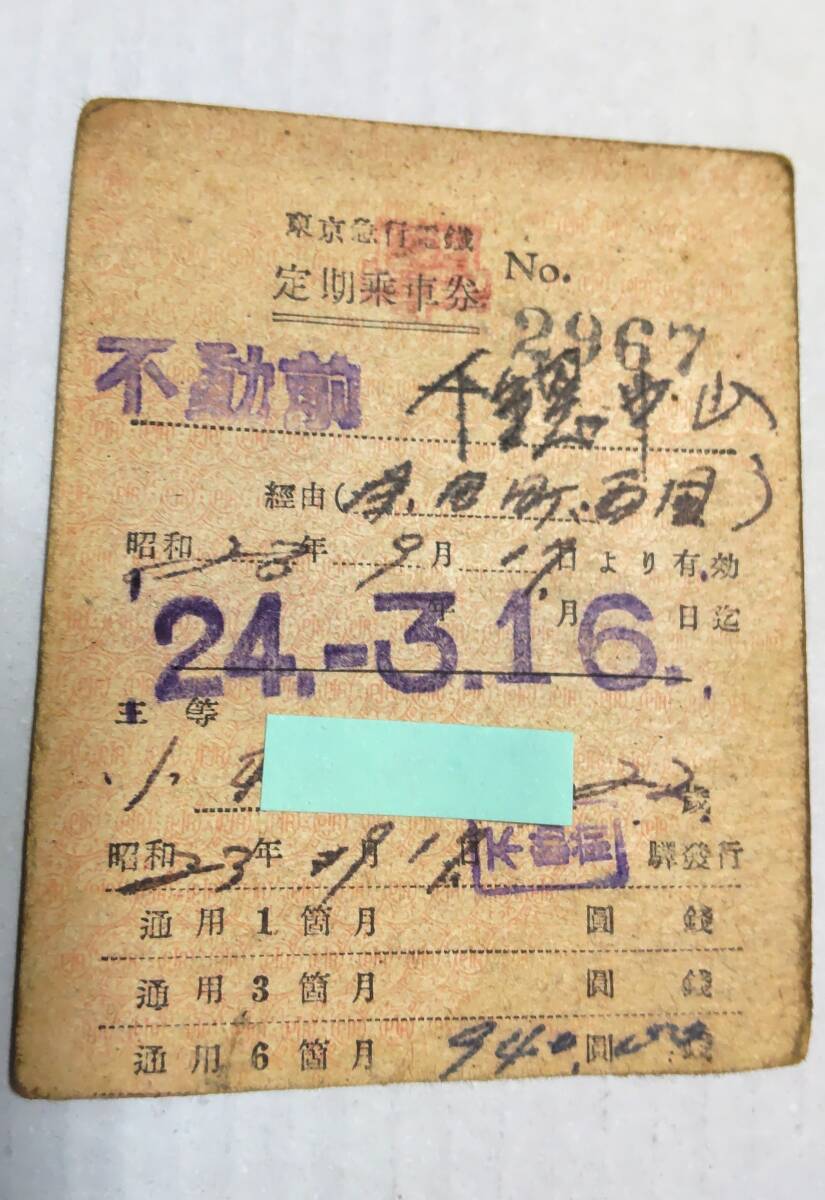 東京急行電鐵
定期乗車券 No.
2967
不動前 中山
經由( 田町、 )
昭和23年9月17日より有効
年 月 日迄
24.-3.16.
等
小 22歳
昭和23年9月1 日 不動前 驛發行
通用1箇月 圓 錢
通用3箇月 圓 錢
通用6箇月 940圓 錢